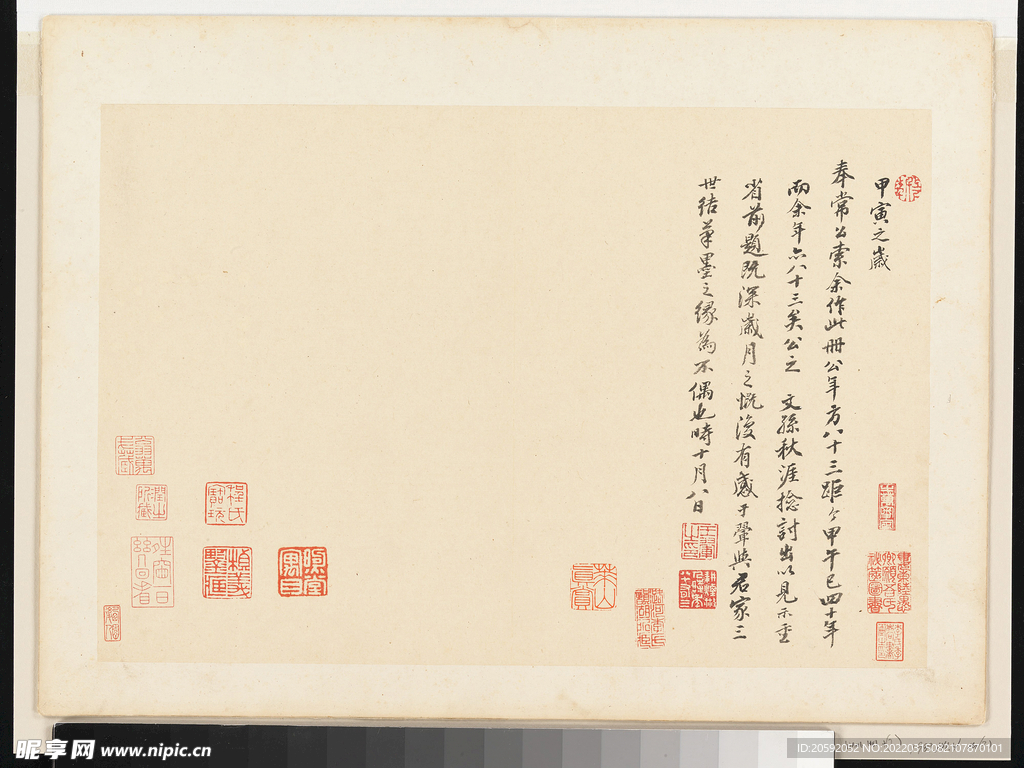 甲寅之歲
奉常公索余作此冊公年方八十三距今甲午已四十年
而余年亦八十三矣公之 文孫秋涯捡討出以見示重
省前題既深歲月之慨復有感于翬與君家三
世結筆墨之緣為不偶也時十月八日
程氏
寶玩
萊山
真賞
昵享网 www.nipic.cn
ID:20592052 NO:20220315082107870101